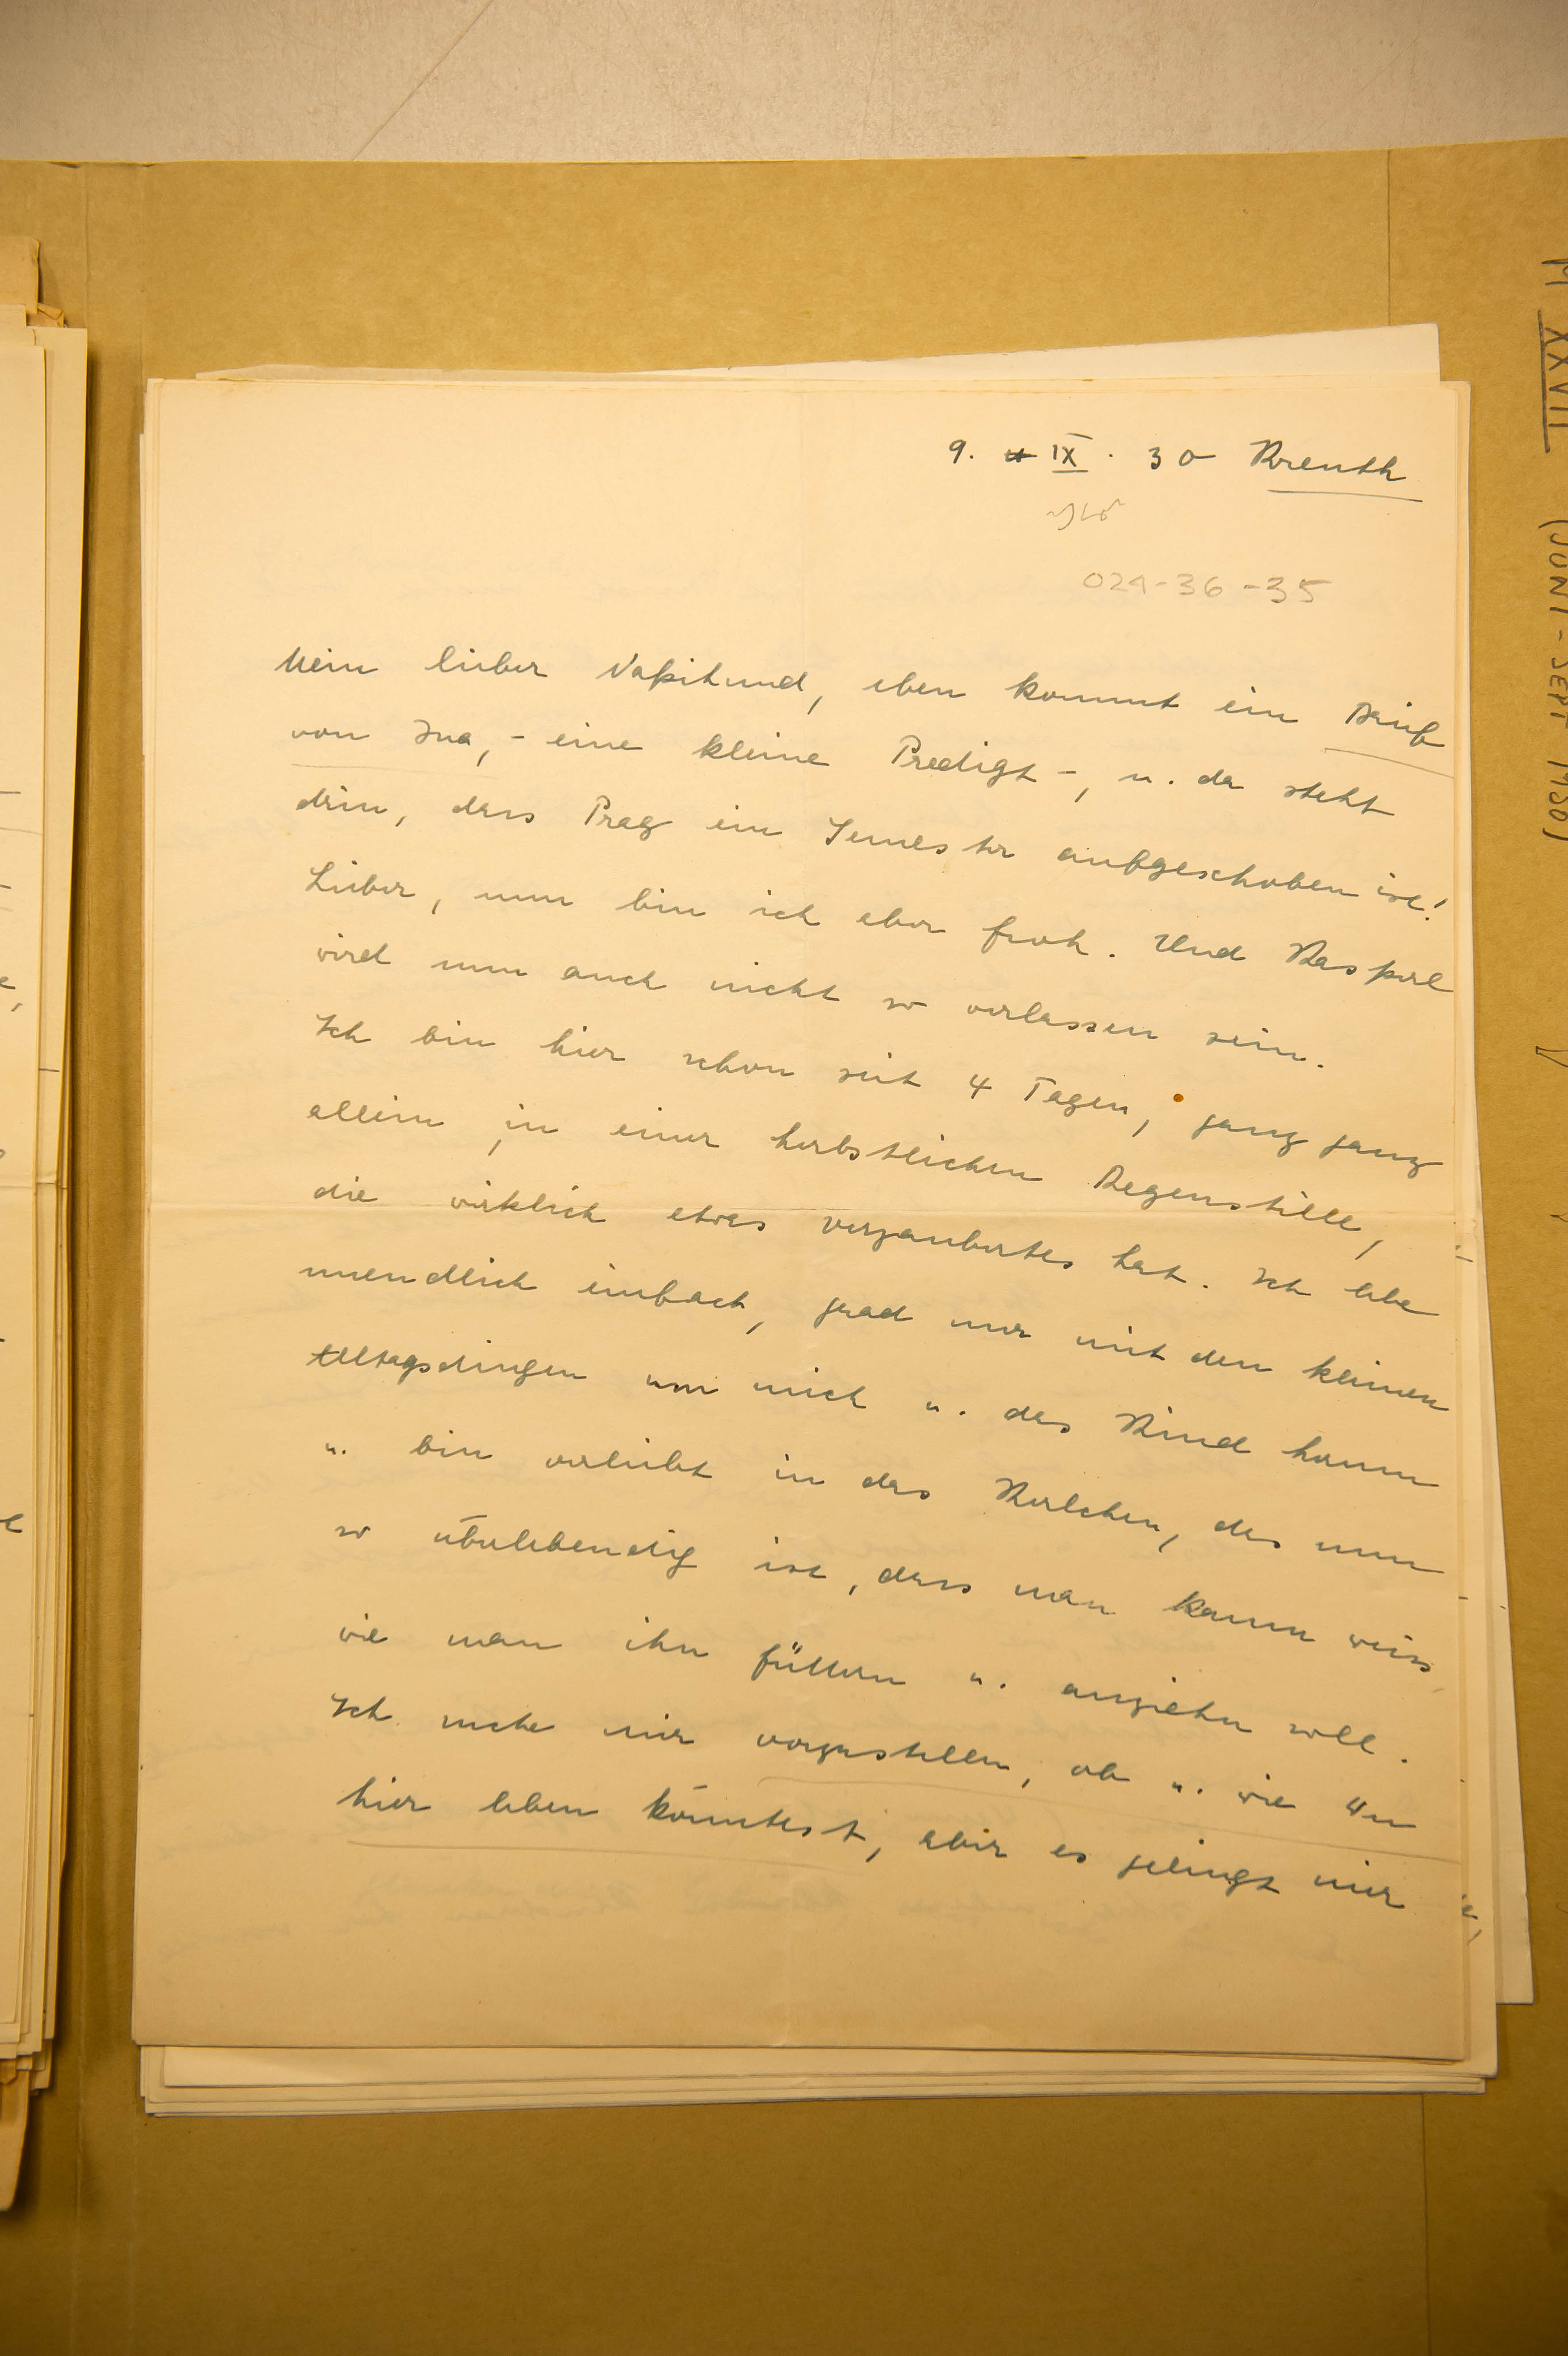 9. IX. 30 Kreuth
024-36-35
Mein lieber Napihund, eben kommt ein Brief
von Ina, - eine kleine Predigt -, u. da steht
drin, dass Prag ein Semester aufgeschoben ist!
Lieber, nun bin ich aber froh. Und Kasperl
wird nun auch nicht so verlassen sein.
Ich bin hier schon seit 4 Tagen, ganz ganz
allein, in einer herbstlichen Regenstille,
die wirklich etwas verzaubertes hat. Ich lebe
unendlich einfach, grad nur mit den kleinen
Alltagsdingen um mich u. das Kind herum
u. bin verliebt in das Kerlchen, das nun
so überlebendig ist, dass man kaum weiss,
wie man ihn füttern u. anziehn soll.
Ich suche mir vorzustellen, ob u. wie Du
hier leben könntest, aber es gelingt mir
M XXVII (JUNI - SEPT 1930)